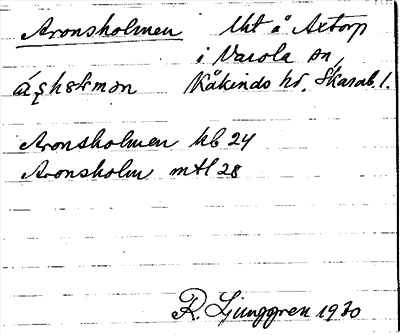 Aronsholmen Uht å Axtorp
i Varola sn,
Kåkinds hd, Skarab. l.
Aronsholmen hb 24
Aronsholm mtl 28
R. Ljunggren 1930